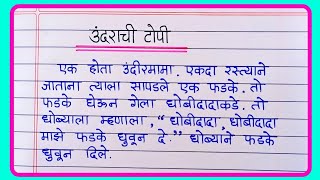 उंदराची टोपी
एक होता उंदीरमामा. एकदा रस्त्याने
जाताना त्याला सापडले एक फडके. तो
फडके घेऊन गेला धोबीदादाकडे. तो
धोब्याला म्हणाला, “धोबीदादा, धोबीदादा
माझे फडके धुवून दे.” धोब्याने फडके
धुवून दिले.